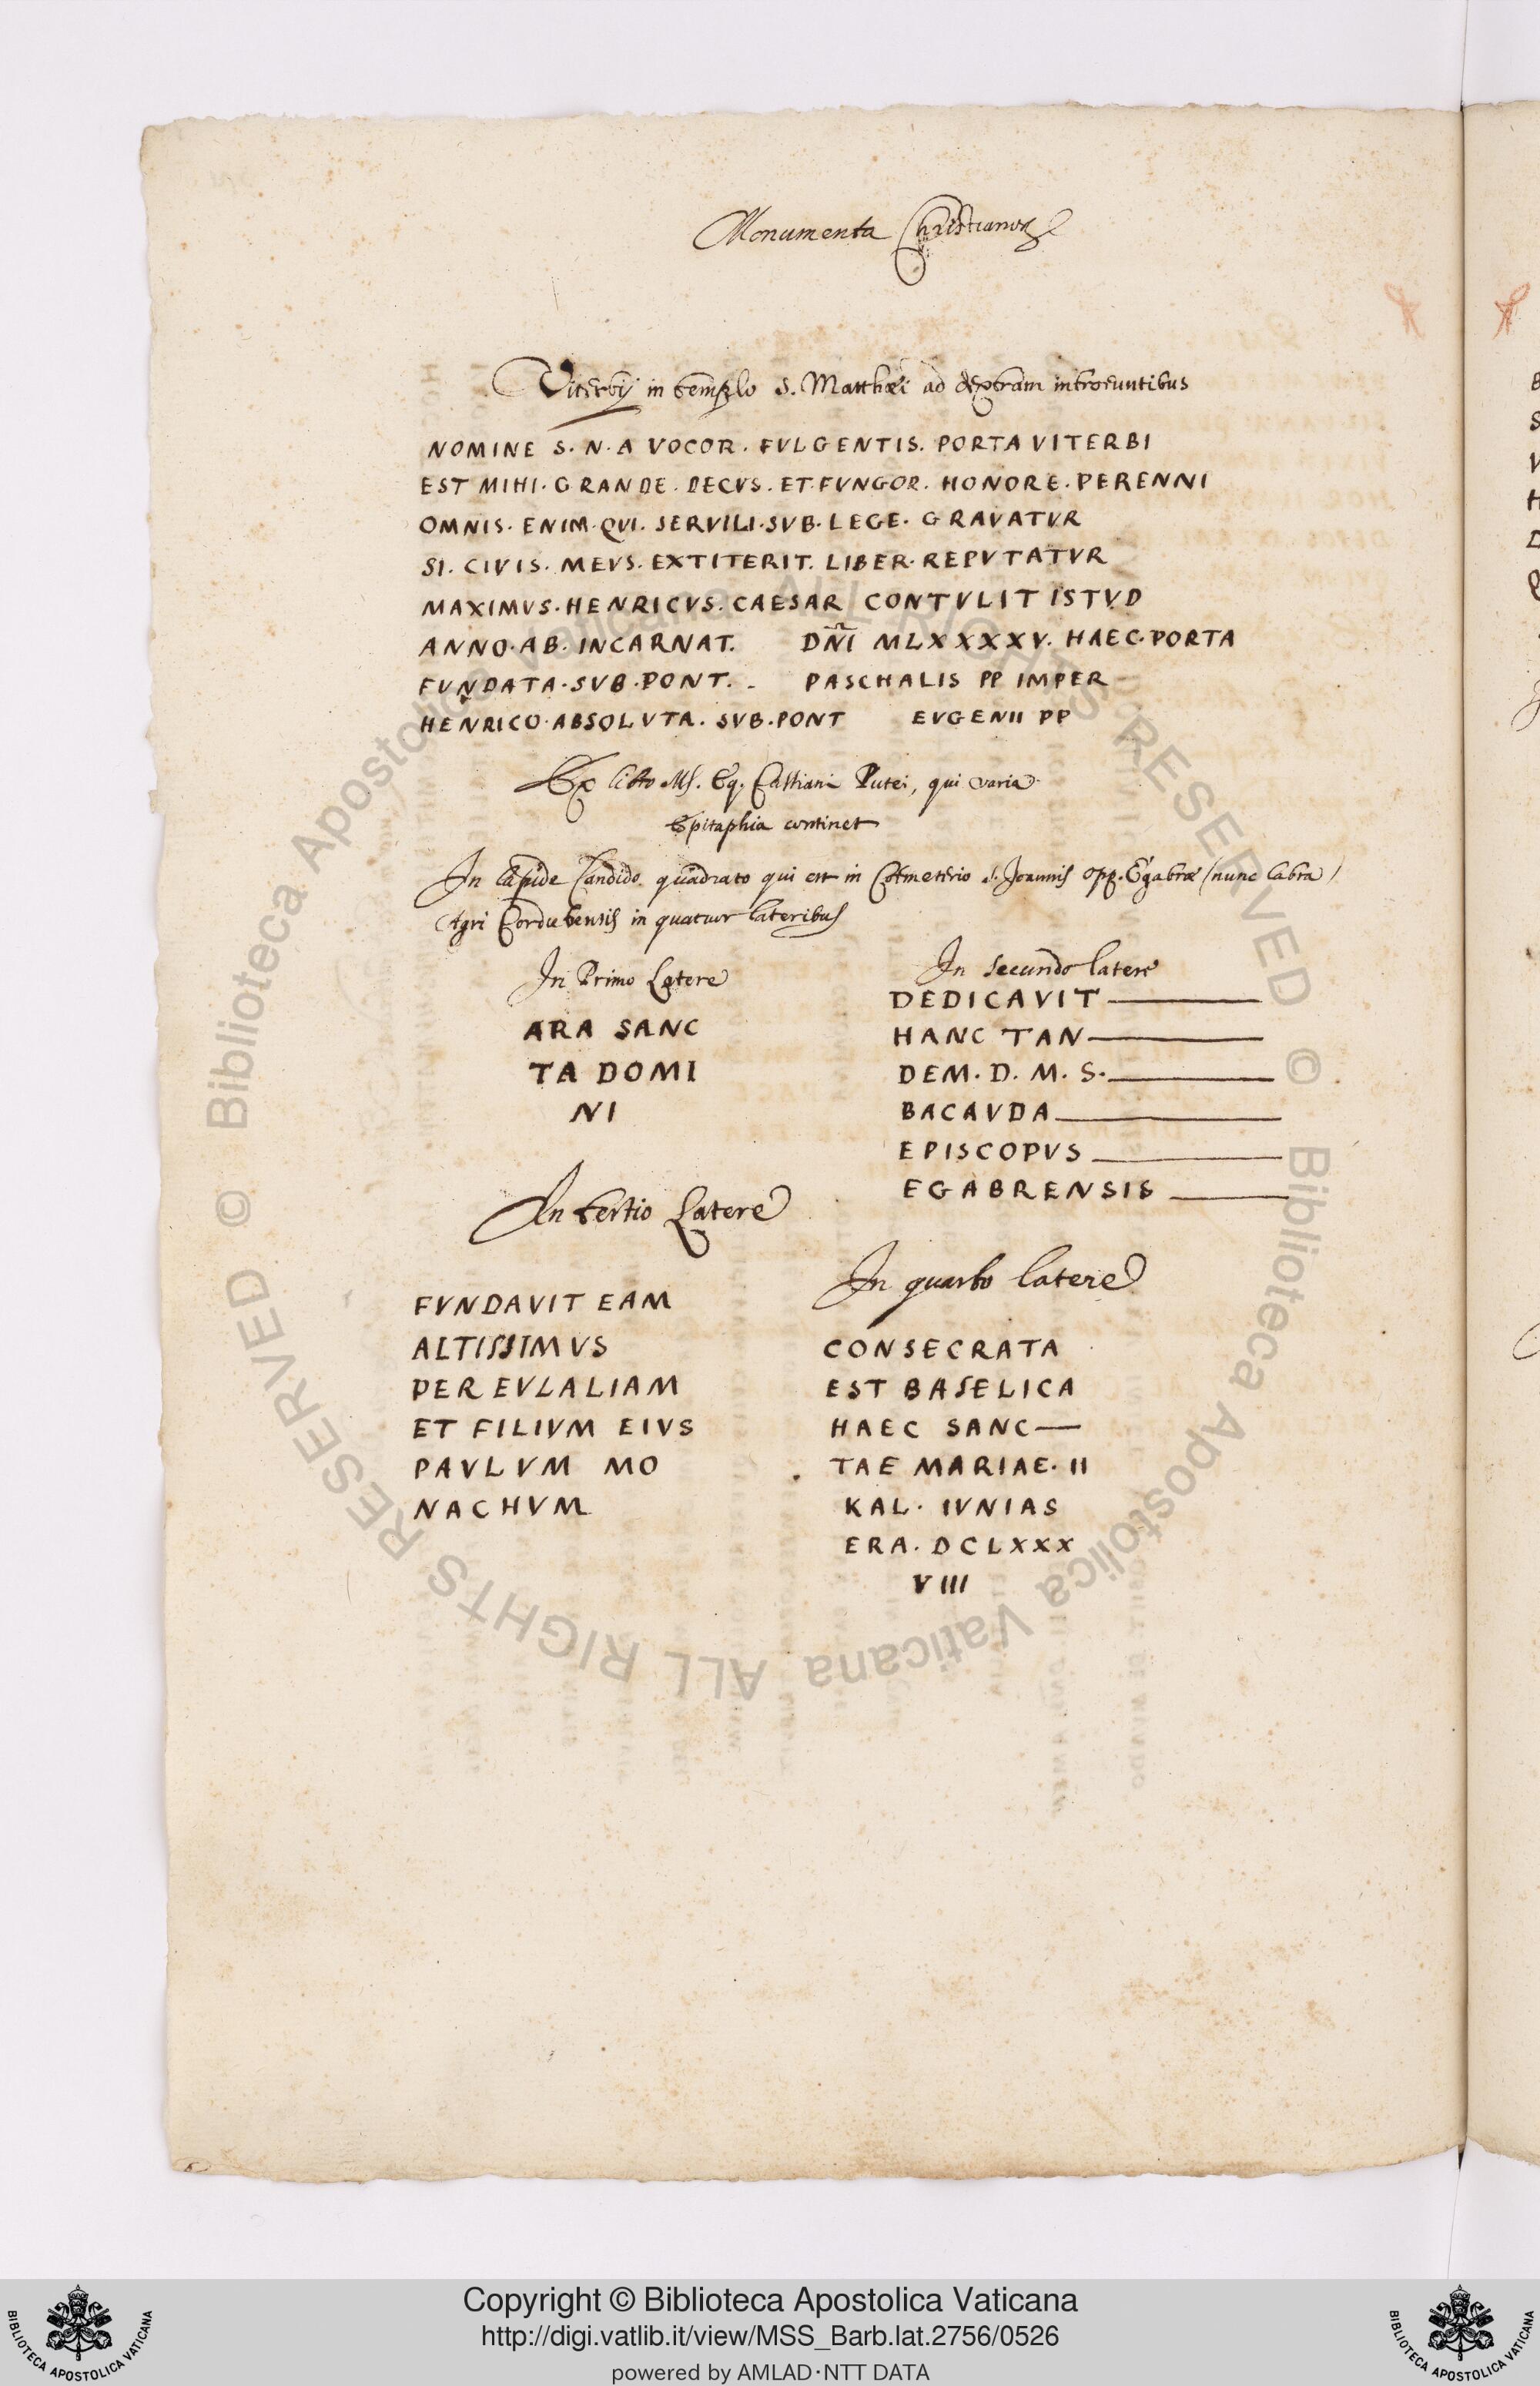 Monumenta Christianor
Viterbij in templo S. Matthæi ad dextram introeuntibus
NOMINE S. N. A VOCOR. FVLGENTIS. PORTA VITERBI
EST MIHI. GRANDE. DECVS. ET. FVNGOR. HONORE. PERENNI
OMNIS. ENIM. QVI. SERVILI. SVB. LEGE. GRAVATVR
SI. CIVIS. MEVS. EXTITERIT. LIBER. REPVTATVR
MAXIMVS. HENRICVS. CAESAR CONTVLIT ISTVD
ANNO. AB. INCARNAT. DÑI MLXXXXV. HAEC. PORTA
FVNDATA. SVB. PONT. PASCHALIS PP IMPER
HENRICO. ABSOLVTA. SVB. PONT EVGENII PP
Ex libro MS. Eq. Cassiani Putei, qui varia
Epitaphia continet
In lapide Candido quadrato qui est in Cœmeterio S. Joannis opp. Egabræ (nunc Cabra)
Agri Cordubensis in quatuor lateribus
In Primo Latere
ARA SANC
TA DOMI
NI
In Secundo latere
DEDICAVIT
HANC TAN
DEM. D. M. S.
BACAVDA
EPISCOPVS
EGABRENSIS
In tertio Latere
FVNDAVIT EAM
ALTISSIMVS
PER EVLALIAM
ET FILIVM EIVS
PAVLVM MO
NACHVM
In quarto latere
CONSECRATA
EST BASELICA
HAEC SANC
TAE MARIAE. II
KAL. IVNIAS
ERA. DCLXXX
VIII
© Biblioteca Apostolica Vaticana ALL RIGHTS RESERVED © Biblioteca Apostolica Vaticana ALL RIGHTS RESERVED
Copyright © Biblioteca Apostolica Vaticana
http://digi.vatlib.it/view/MSS_Barb.lat.2756/0526
powered by AMLAD·NTT DATA
BIBLIOTECA APOSTOLICA VATICANA
BIBLIOTECA APOSTOLICA VATICANA